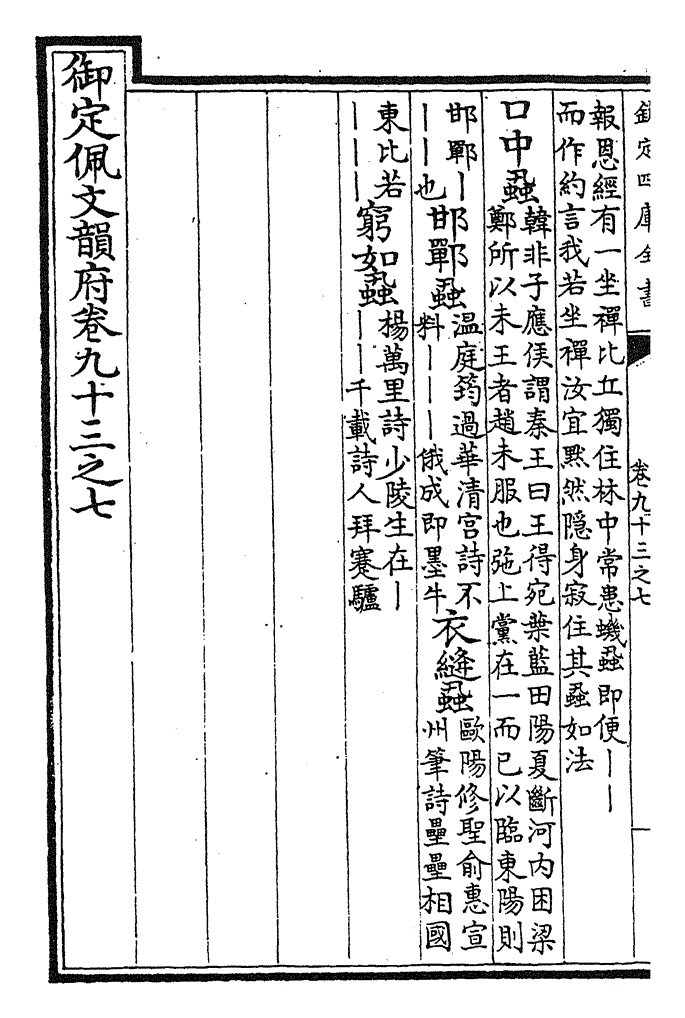 欽定四庫全書 卷九十三之七
報恩經有一坐禪比丘獨住林中常患蟣蝨即便——
而作約言我若坐禪汝宜黙然隱身寂住其蝨如法
口中蝨
韓非子應侯謂秦王曰王得宛葉藍田陽夏斷河内困梁
鄭所以未王者趙未服也弛上黨在一而已以臨東陽則
邯鄲—
——也
邯鄲蝨
温庭筠過華清宫詩不
料———俄成即墨牛
衣縫蝨
歐陽修聖俞惠宣
州筆詩壘壘相國
東比若
———
窮如蝨
楊萬里詩少陵生在—
——千載詩人拜蹇驢
御定佩文韻府卷九十三之七